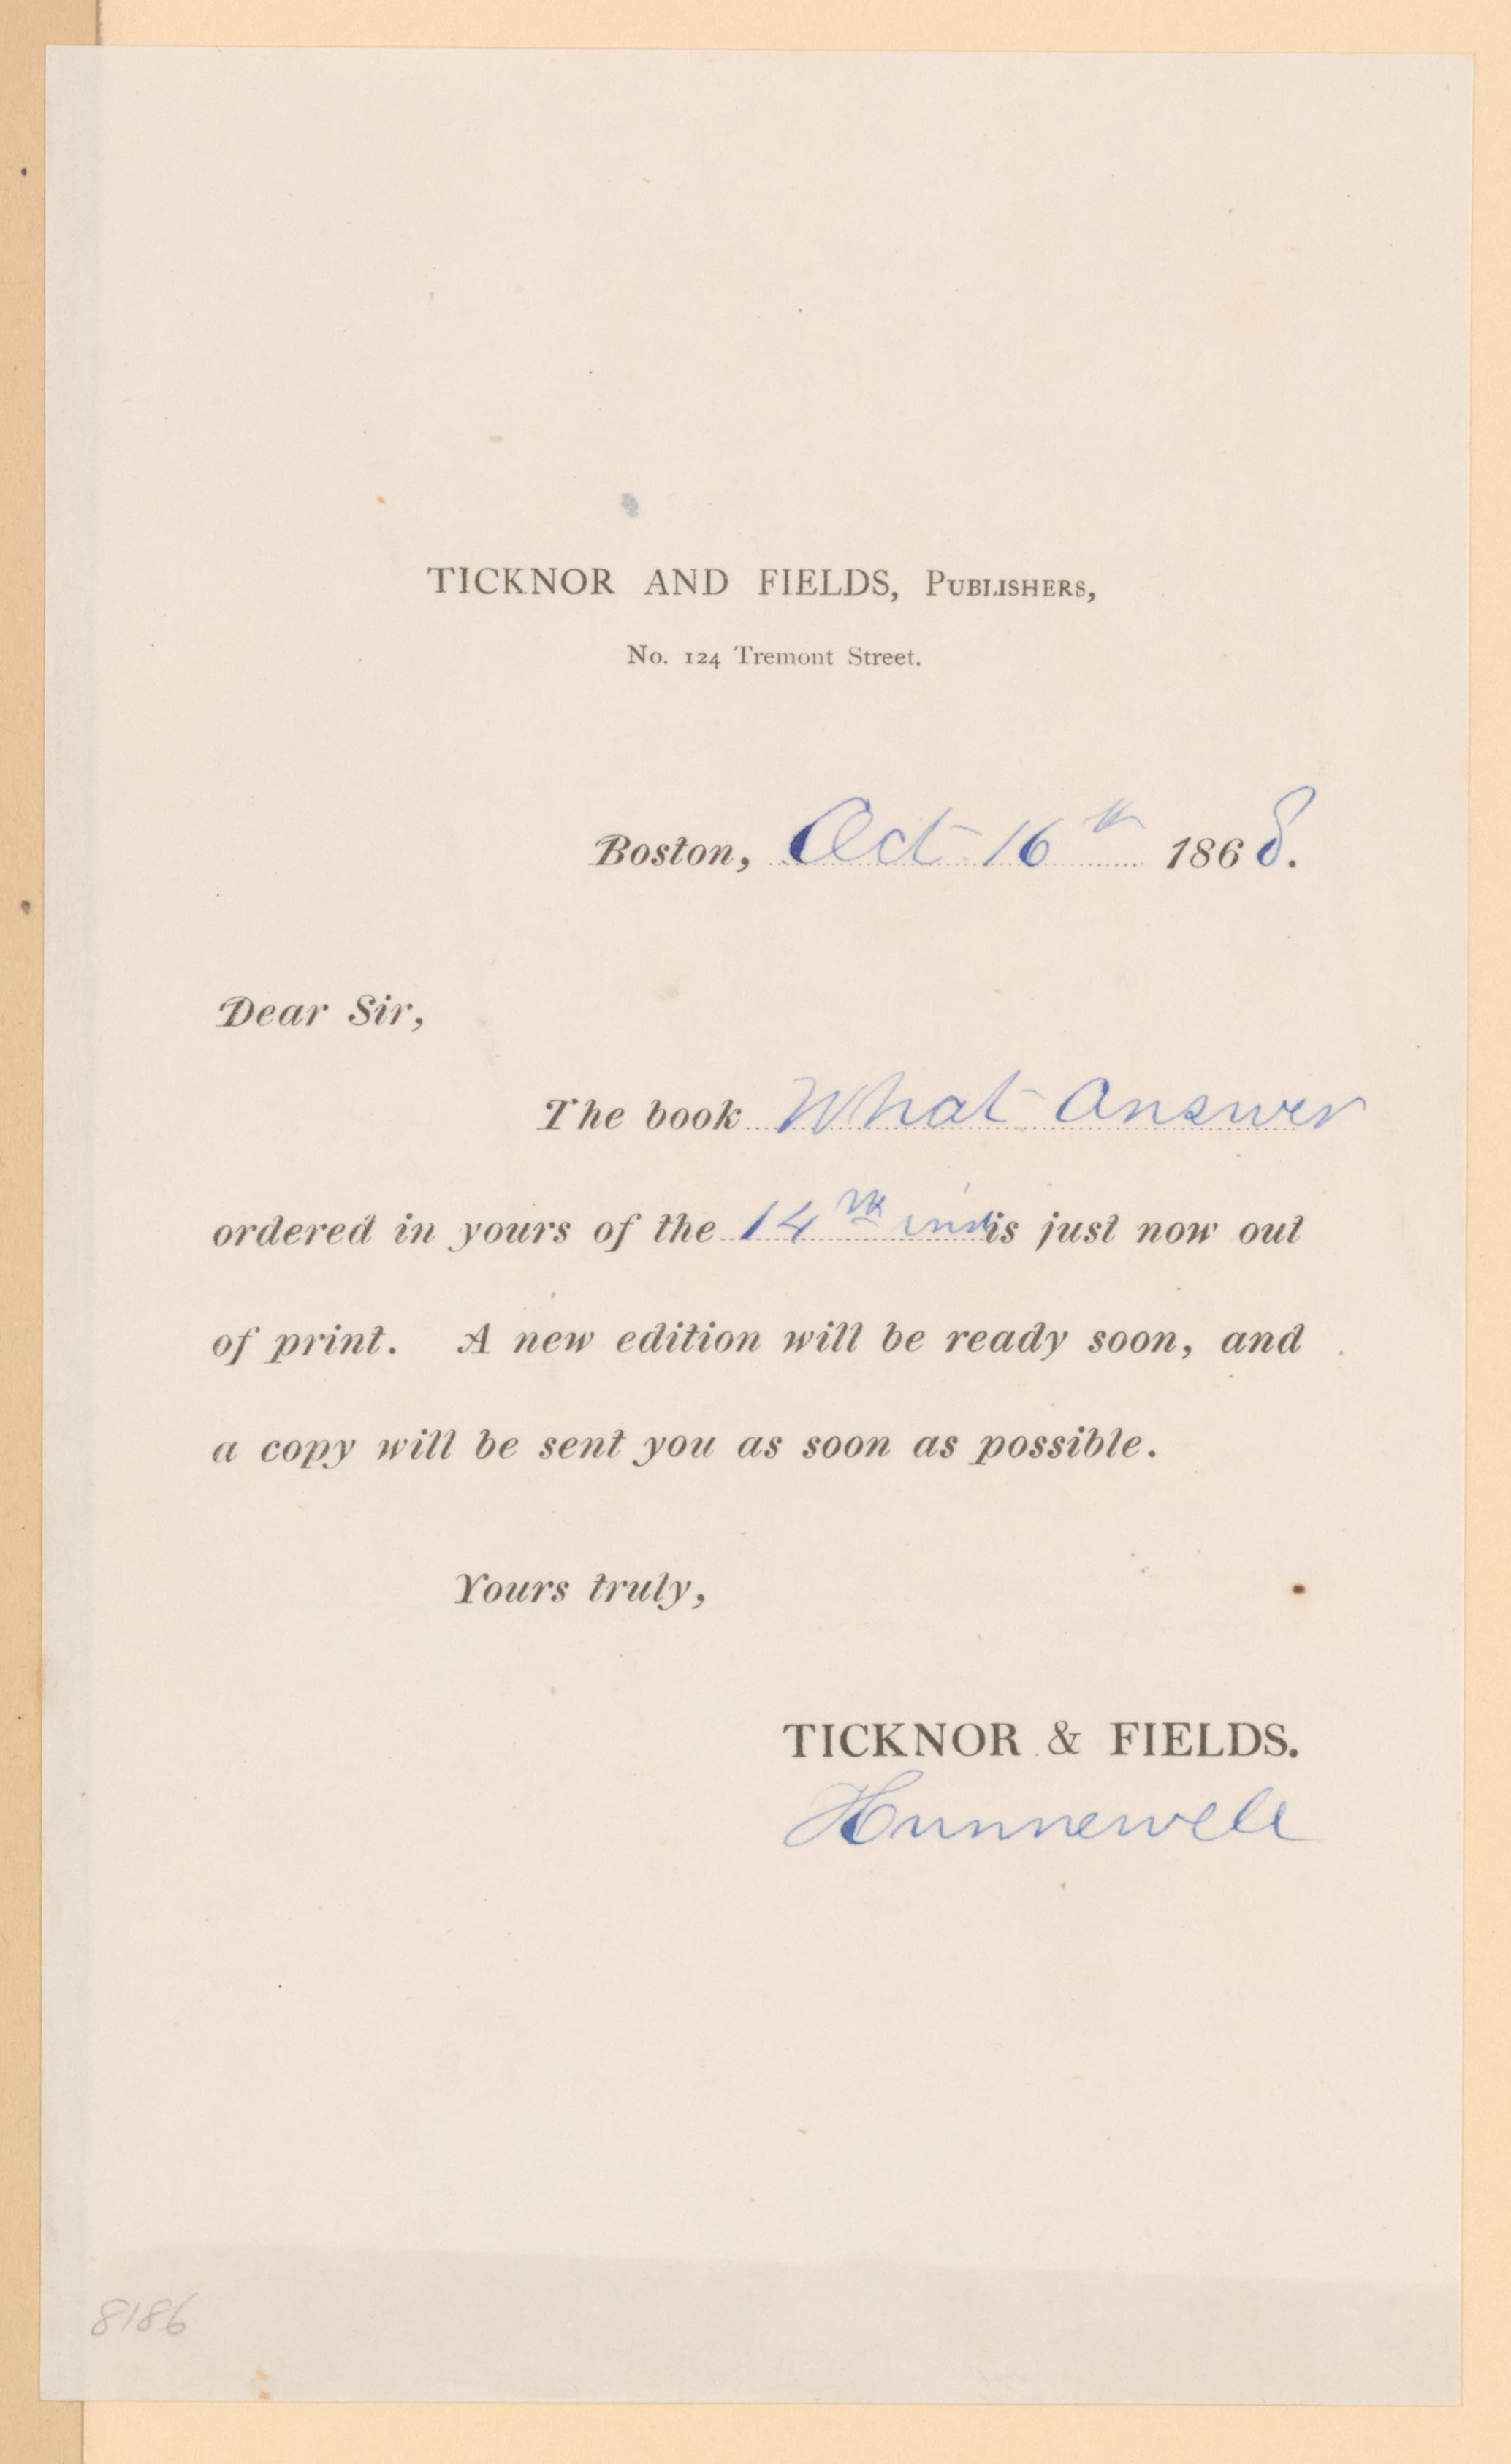 TICKNOR AND FIELDS, PUBLISHERS,
No. 124 Tremont Street.
Boston, Oct 16th 1868.
Dear Sir,
The book What Answer
ordered in yours of the 14th inst is just now out
of print. A new edition will be ready soon, and
a copy will be sent you as soon as possible.
Yours truly,
TICKNOR & FIELDS.
Hunnewell
8186